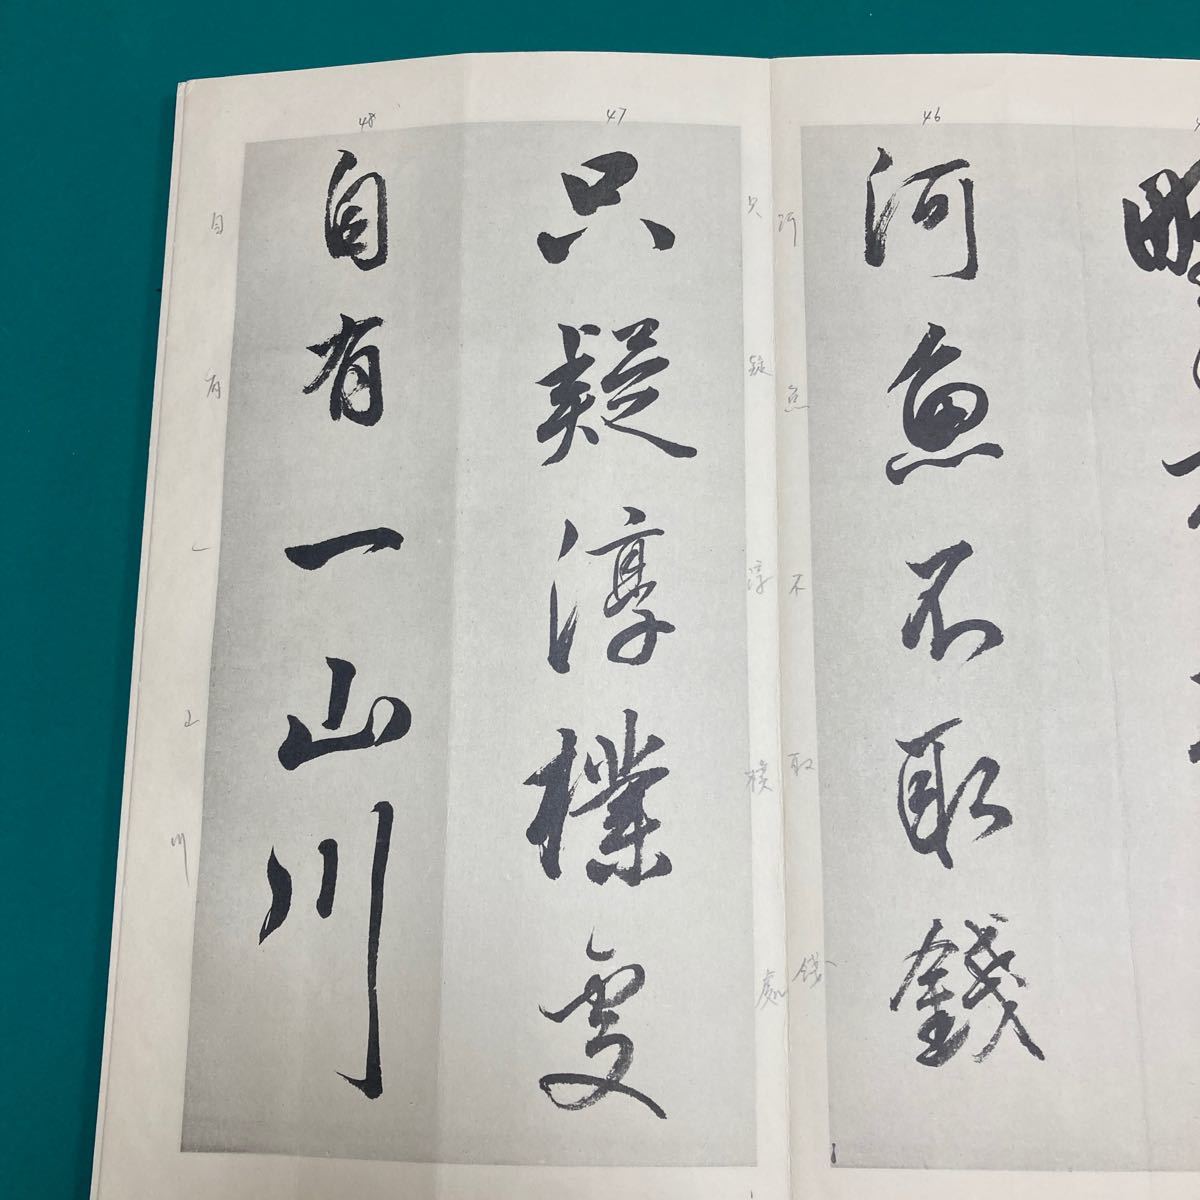 46
河魚不取錢
河魚不取錢
47
只疑淳樸處
只疑淳樸處
48
自有一山川
自有一山川